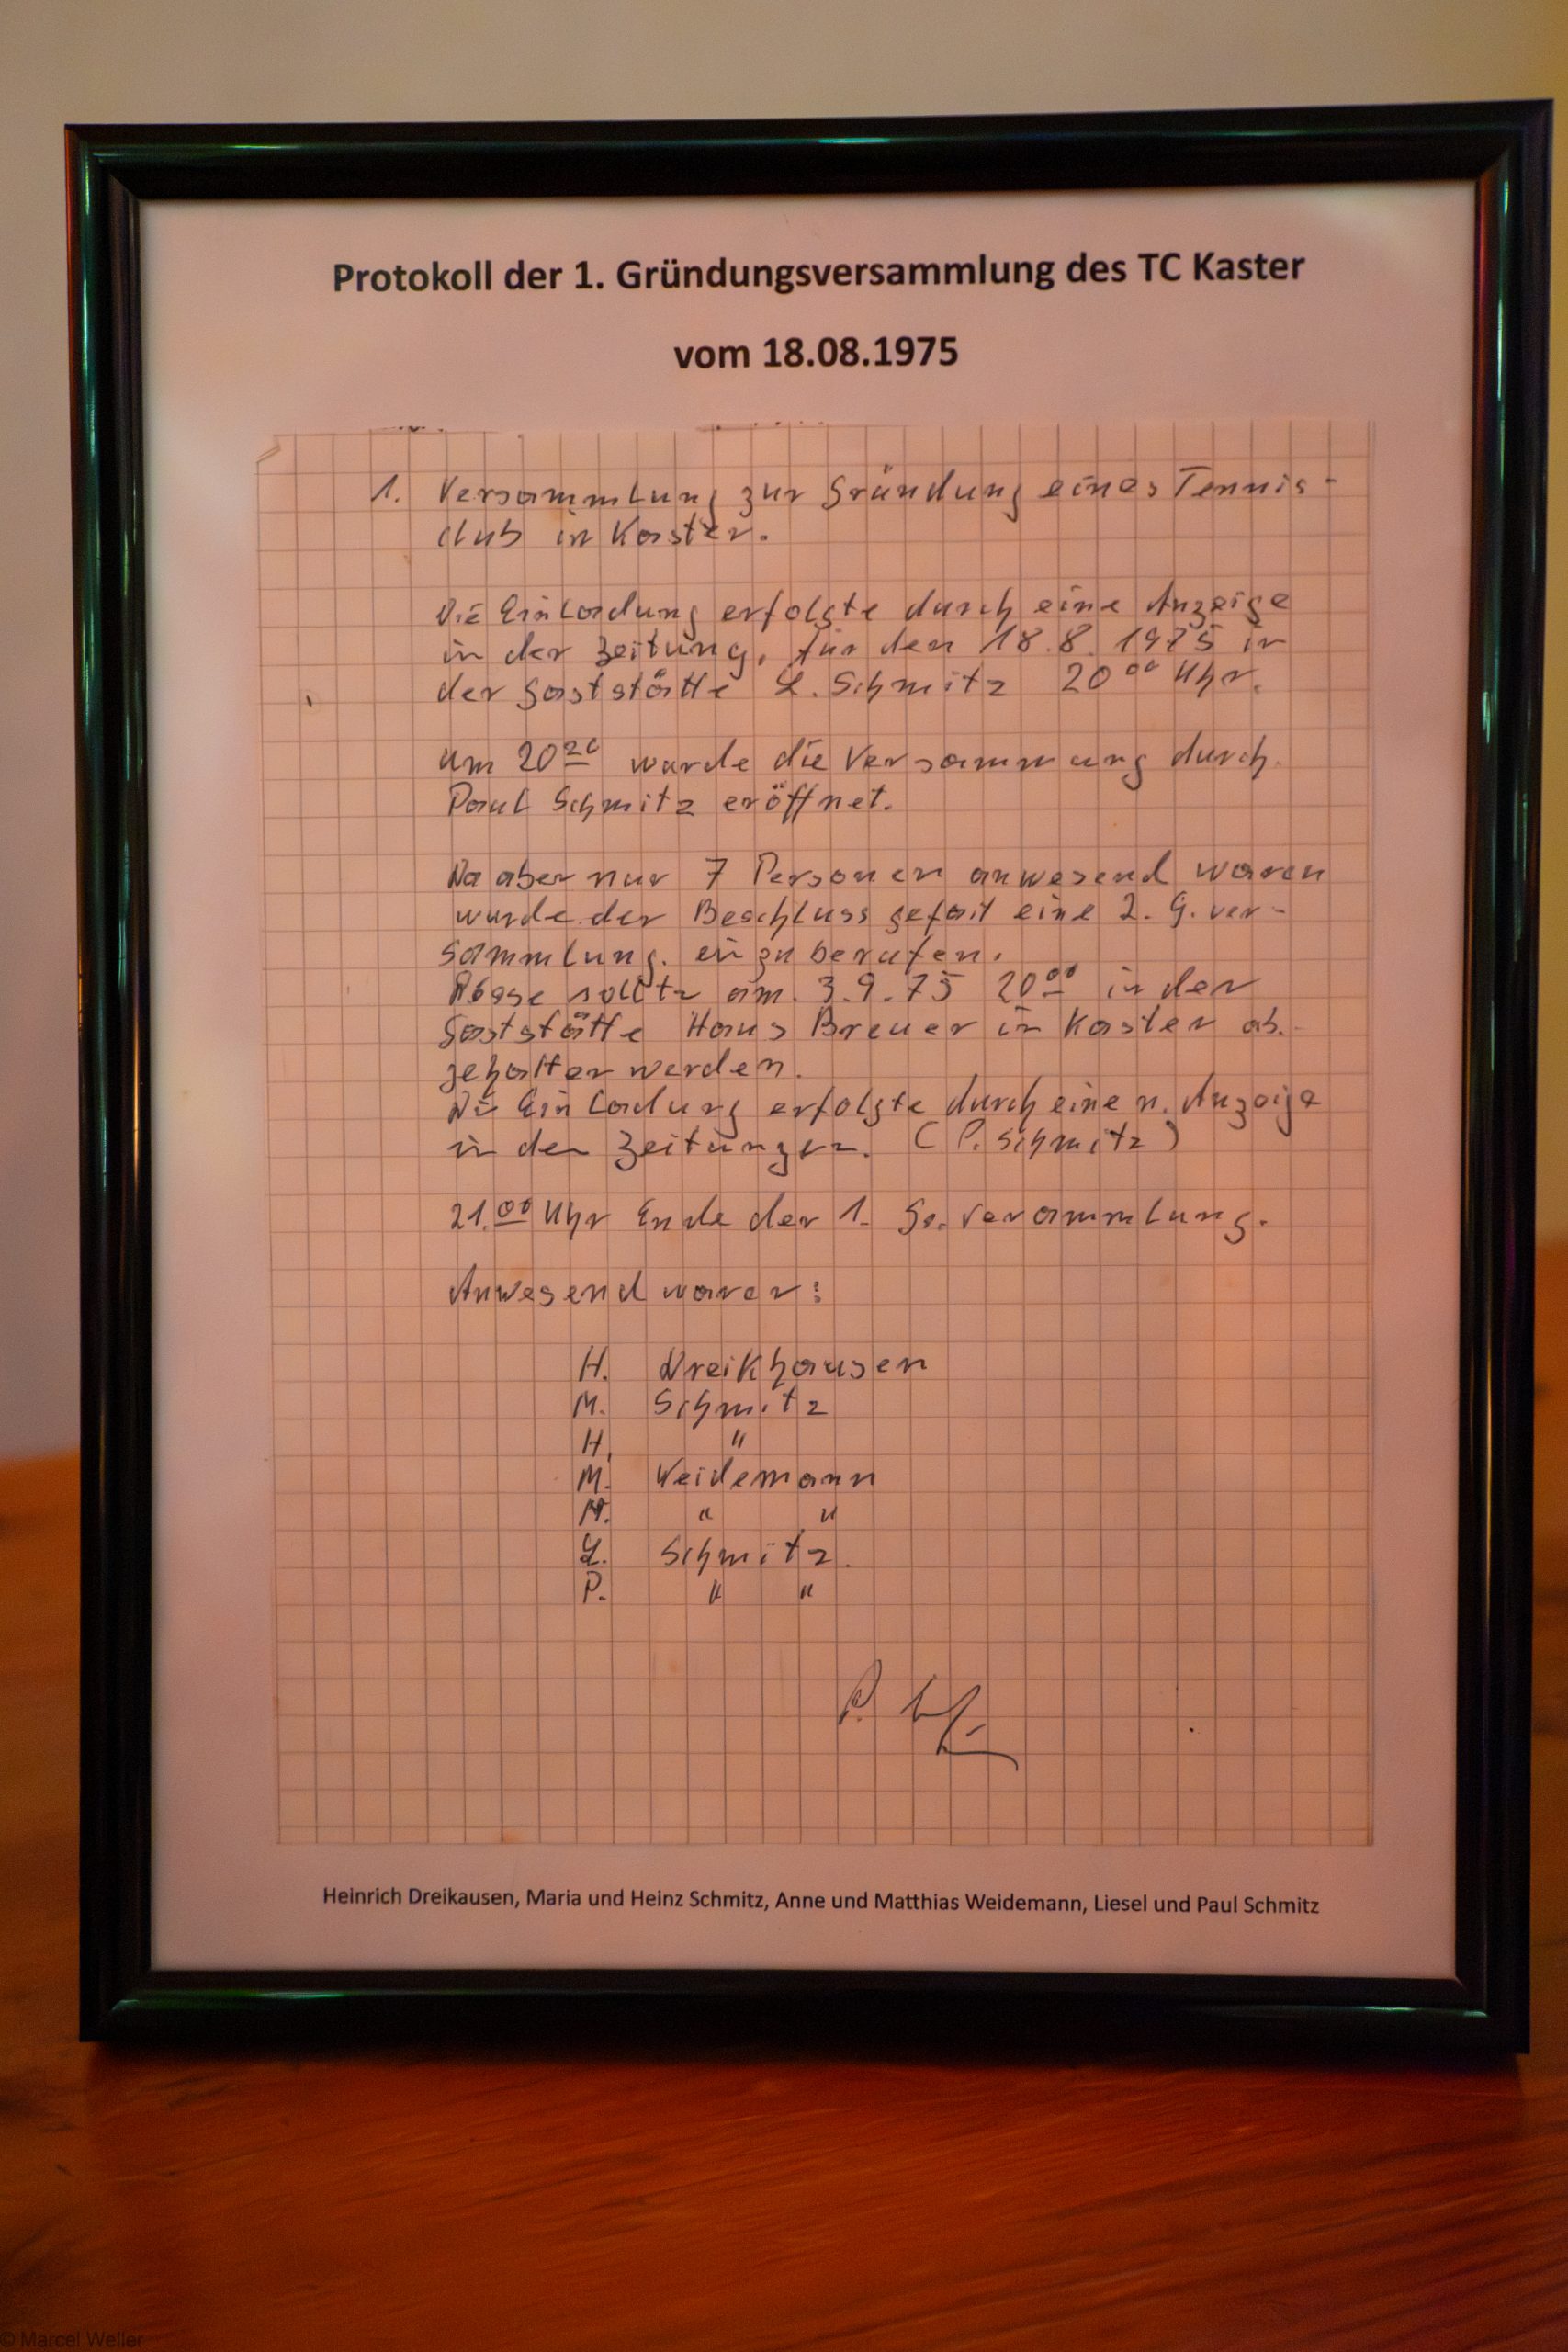 Protokoll der 1. Gründungsversammlung des TC Kaster
vom 18.08.1975
1. Versammlung zur Gründung eines Tennis-
club in Kaster.
Die Einladung erfolgte durch eine Anzeige
in der Zeitung, für den 18.8.1975 in
der Gaststätte L. Schmitz 20⁰⁰ Uhr.
um 20²⁰ wurde die Versammlung durch
Paul Schmitz eröffnet.
Da aber nur 7 Personen anwesend waren
wurde der Beschluss gefasst eine 2. G. ver-
sammlung. einzuberufen.
sollte am. 3.9.75 20⁰⁰ in der
Gaststätte Hans Breuer in Kaster ab-
gehalten werden.
Die Einladung erfolgte durch eine n. Anzeige
in den Zeitungen. (P. Schmitz)
21.⁰⁰ Uhr Ende der 1. Gr. Verammlung.
Anwesend waren:
H. Dreikhausen
M. Schmitz
H. "
M. Weidemann
" "
L. Schmitz.
P. " "
P.
Heinrich Dreikausen, Maria und Heinz Schmitz, Anne und Matthias Weidemann, Liesel und Paul Schmitz
© Marcel Weller